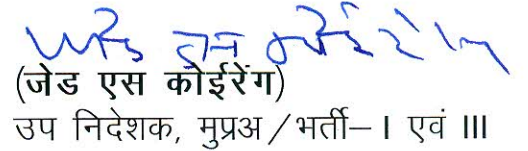 (जेड एस कोईरेंग)
उप निदेशक, मुप्रअ/भर्ती–I एवं III